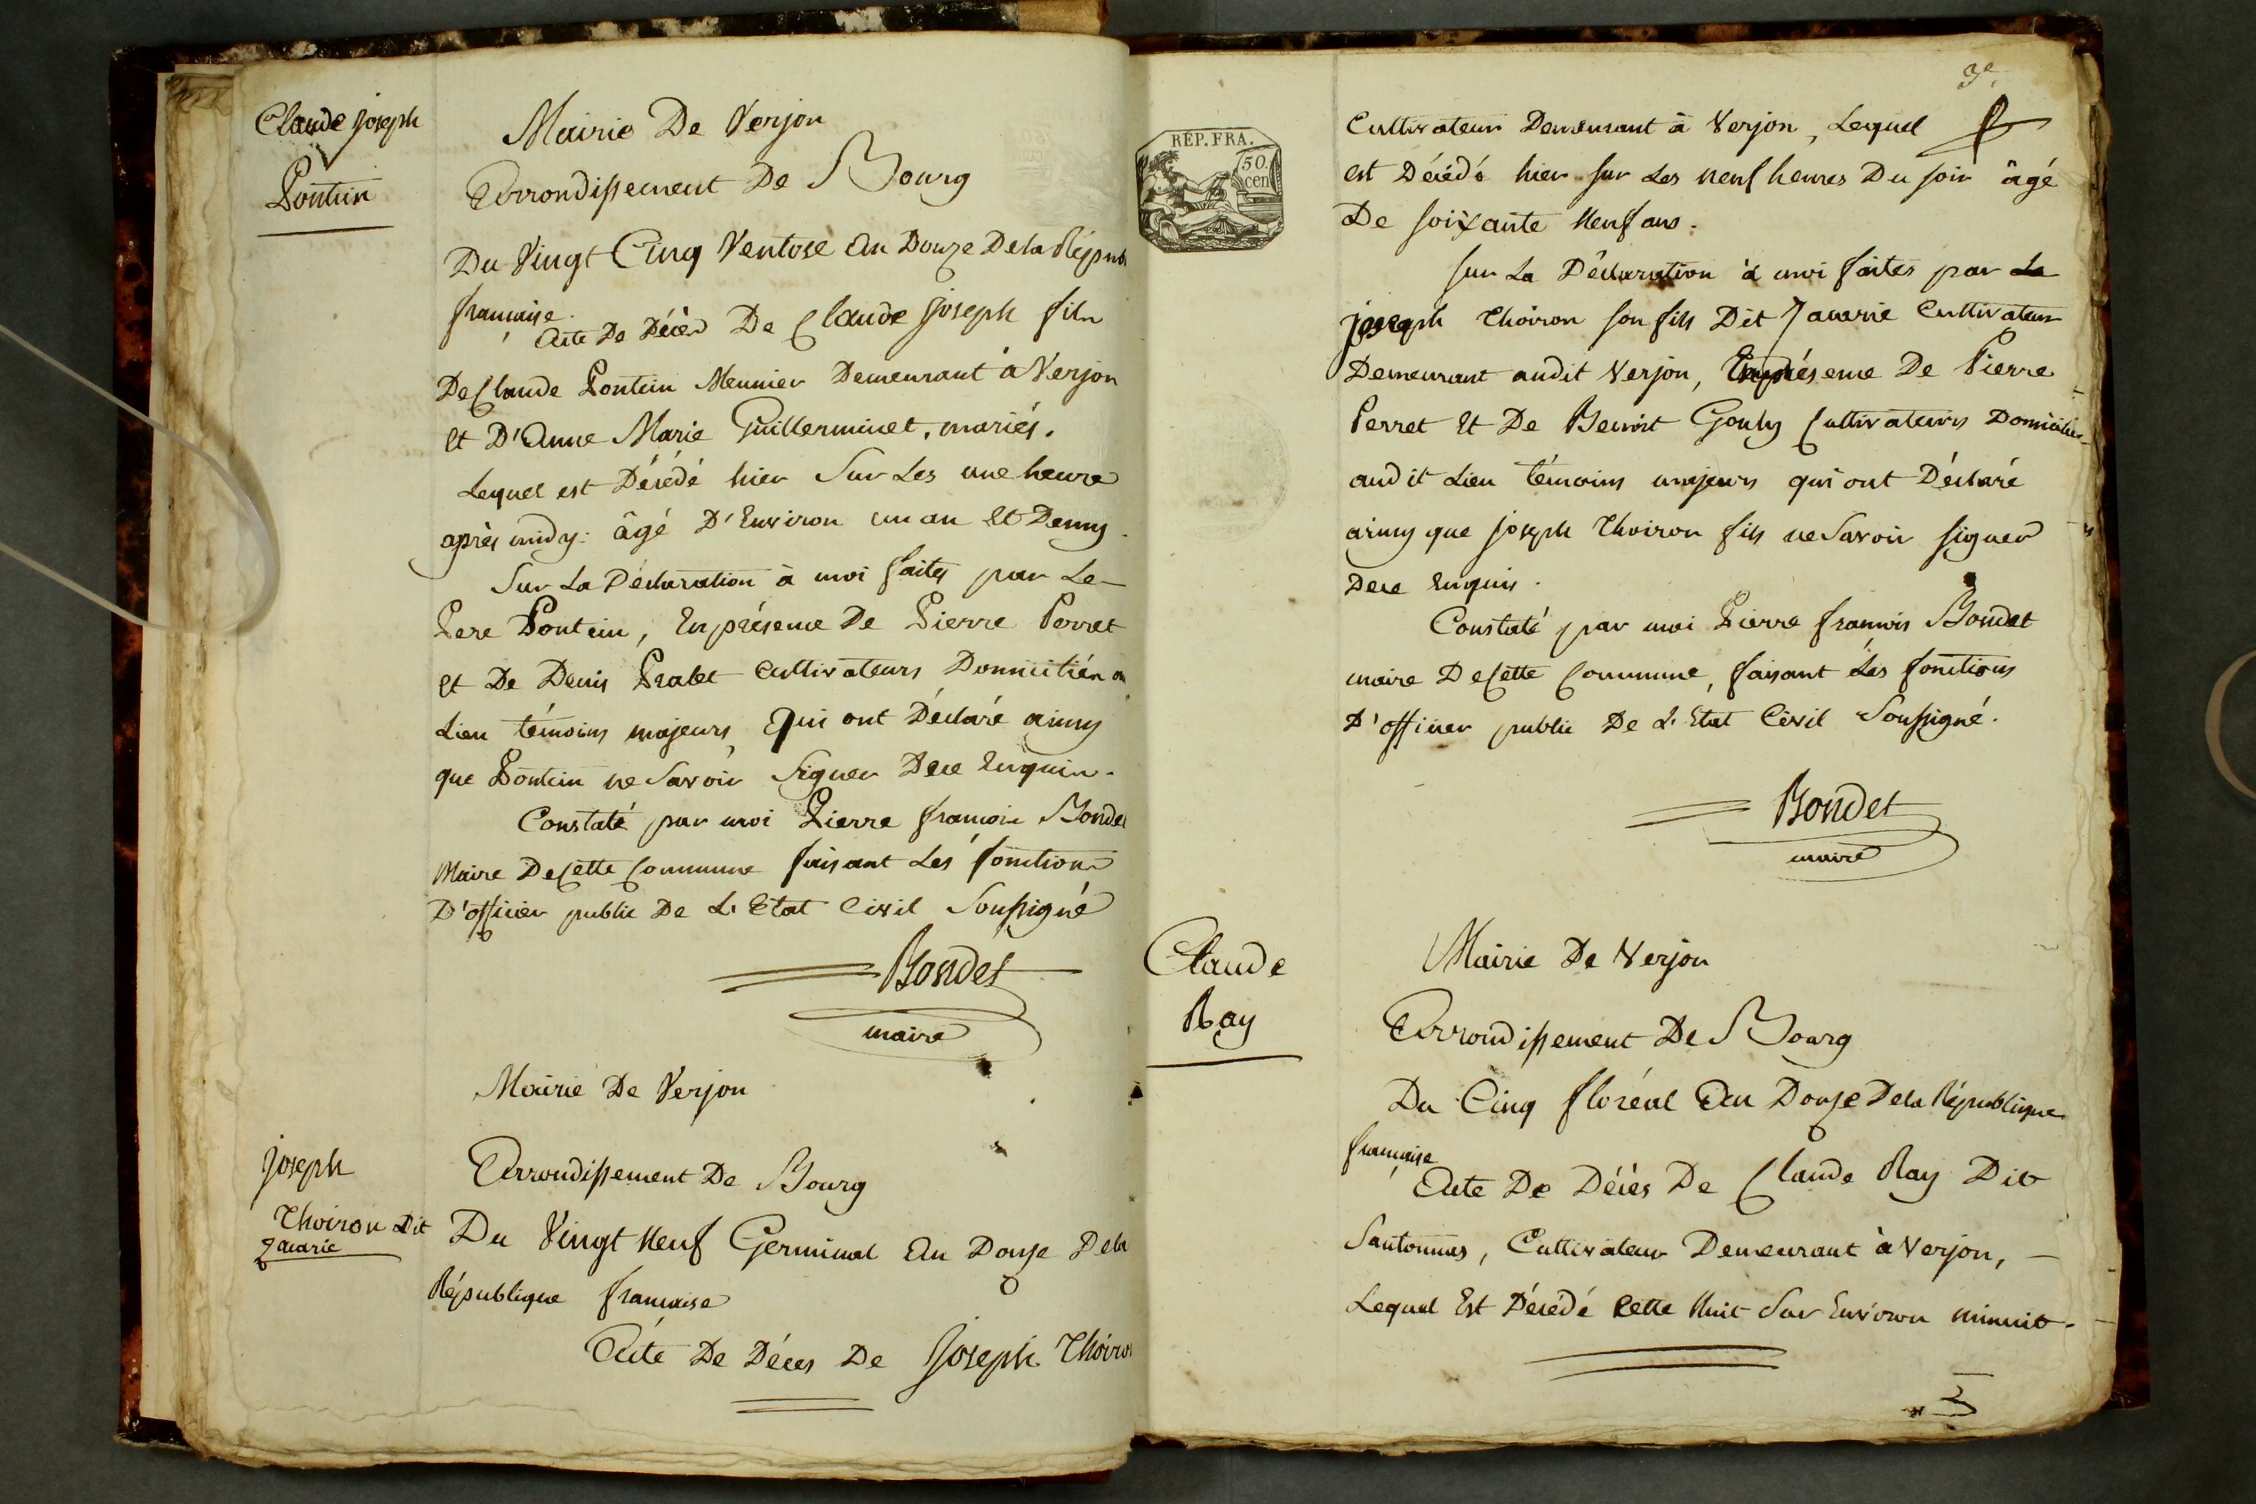 Claude joseph
Pontuin
Mairie De Verjon
Arrondissement De Bourg
Du Vingt Cinq Ventose An Douze De la Répub
française.
Acte De Décès De Claude Joseph fils
De Claude Pontuin Meunier Demeurant à Verjon
et D'Anne Marie Guillerminet, mariés.
Lequel est Décédé hier Sur Les une heure
après midy: âgé D'Environ un an Et Demy.
Sur La Déclaration à moi faites par Le
Pere Pontuin, En présence De Pierre Perret
et De Denis Pralet Cultivateurs Domiciliés au
Lieu témoins majeurs, Qui ont Déclaré ainsy
que Pontuin ne Savoir Signer Dece Enquis.
Constaté par moi Pierre françois Bondet
Maire De Cette Commune faisant Les fonctions
D'officier public De L'Etat Civil Soussigné
Bondet
maire
Mairie De Verjon
joseph
Thoiron Dit
Zacarie
Arrondissement De Bourg
Du Vingt Neuf Germinal An Douze De la
République française
Acte De Décès De Joseph Thoiron
3e.
REP. FRA.
50.
cen
Cultivateur Demeurant à Verjon, Lequel
est Décédé hier sur Les neuf heures Du soir âgé
De soixante Neuf ans.
sur La Déclaration à moi faites par La
joseph Thoiron son fils Dit Zacarie Cultivateur
Demeurant audit Verjon, En présence De Pierre
Perret Et De Benoit Gouly Cultivateurs Domiciliés
audit Lieu témoins majeurs qui ont Déclaré
ainsy que joseph Thoiron fils ne Savoir signer
Dece Enquis.
Constaté par moi Pierre françois Bondet
maire De Cette Commune, faisant Les fonctions
D'officier public De L'Etat Civil Soussigné.
Bondet
maire
Claude
Ray
Mairie De Verjon
Arrondissement De Bourg
Du Cinq floréal An Douze De la République
française
Acte De Décès De Claude Ray Dit
Santonnas, Cultivateur Demeurant à Verjon,
Lequel Est Décédé Cette Nuit Sur Environ minuit.